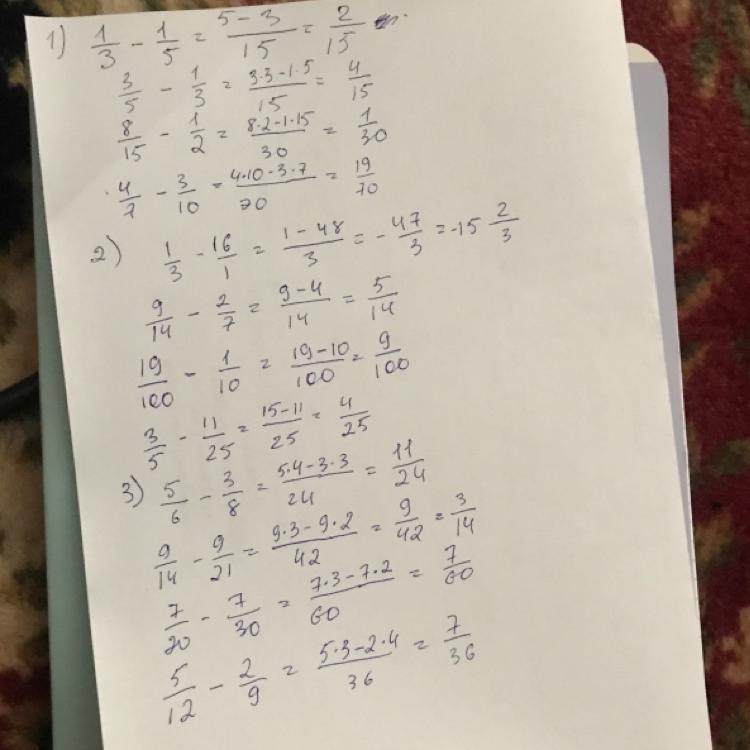 1) 1/3 - 1/5 = (5-3)/15 = 2/15
3/5 - 1/3 = (3·3-1·5)/15 = 4/15
8/15 - 1/2 = (8·2-1·15)/30 = 1/30
4/7 - 3/10 = (4·10-3·7)/70 = 19/70
2) 1/3 - 16/1 = (1-48)/3 = -47/3 = -15 2/3
9/14 - 2/7 = (9-4)/14 = 5/14
19/100 - 1/10 = (19-10)/100 = 9/100
3/5 - 11/25 = (15-11)/25 = 4/25
3) 5/6 - 3/8 = (5·4-3·3)/24 = 11/24
9/14 - 9/21 = (9·3-9·2)/42 = 9/42 = 3/14
7/20 - 7/30 = (7·3-7·2)/60 = 7/60
5/12 - 2/9 = (5·3-2·4)/36 = 7/36